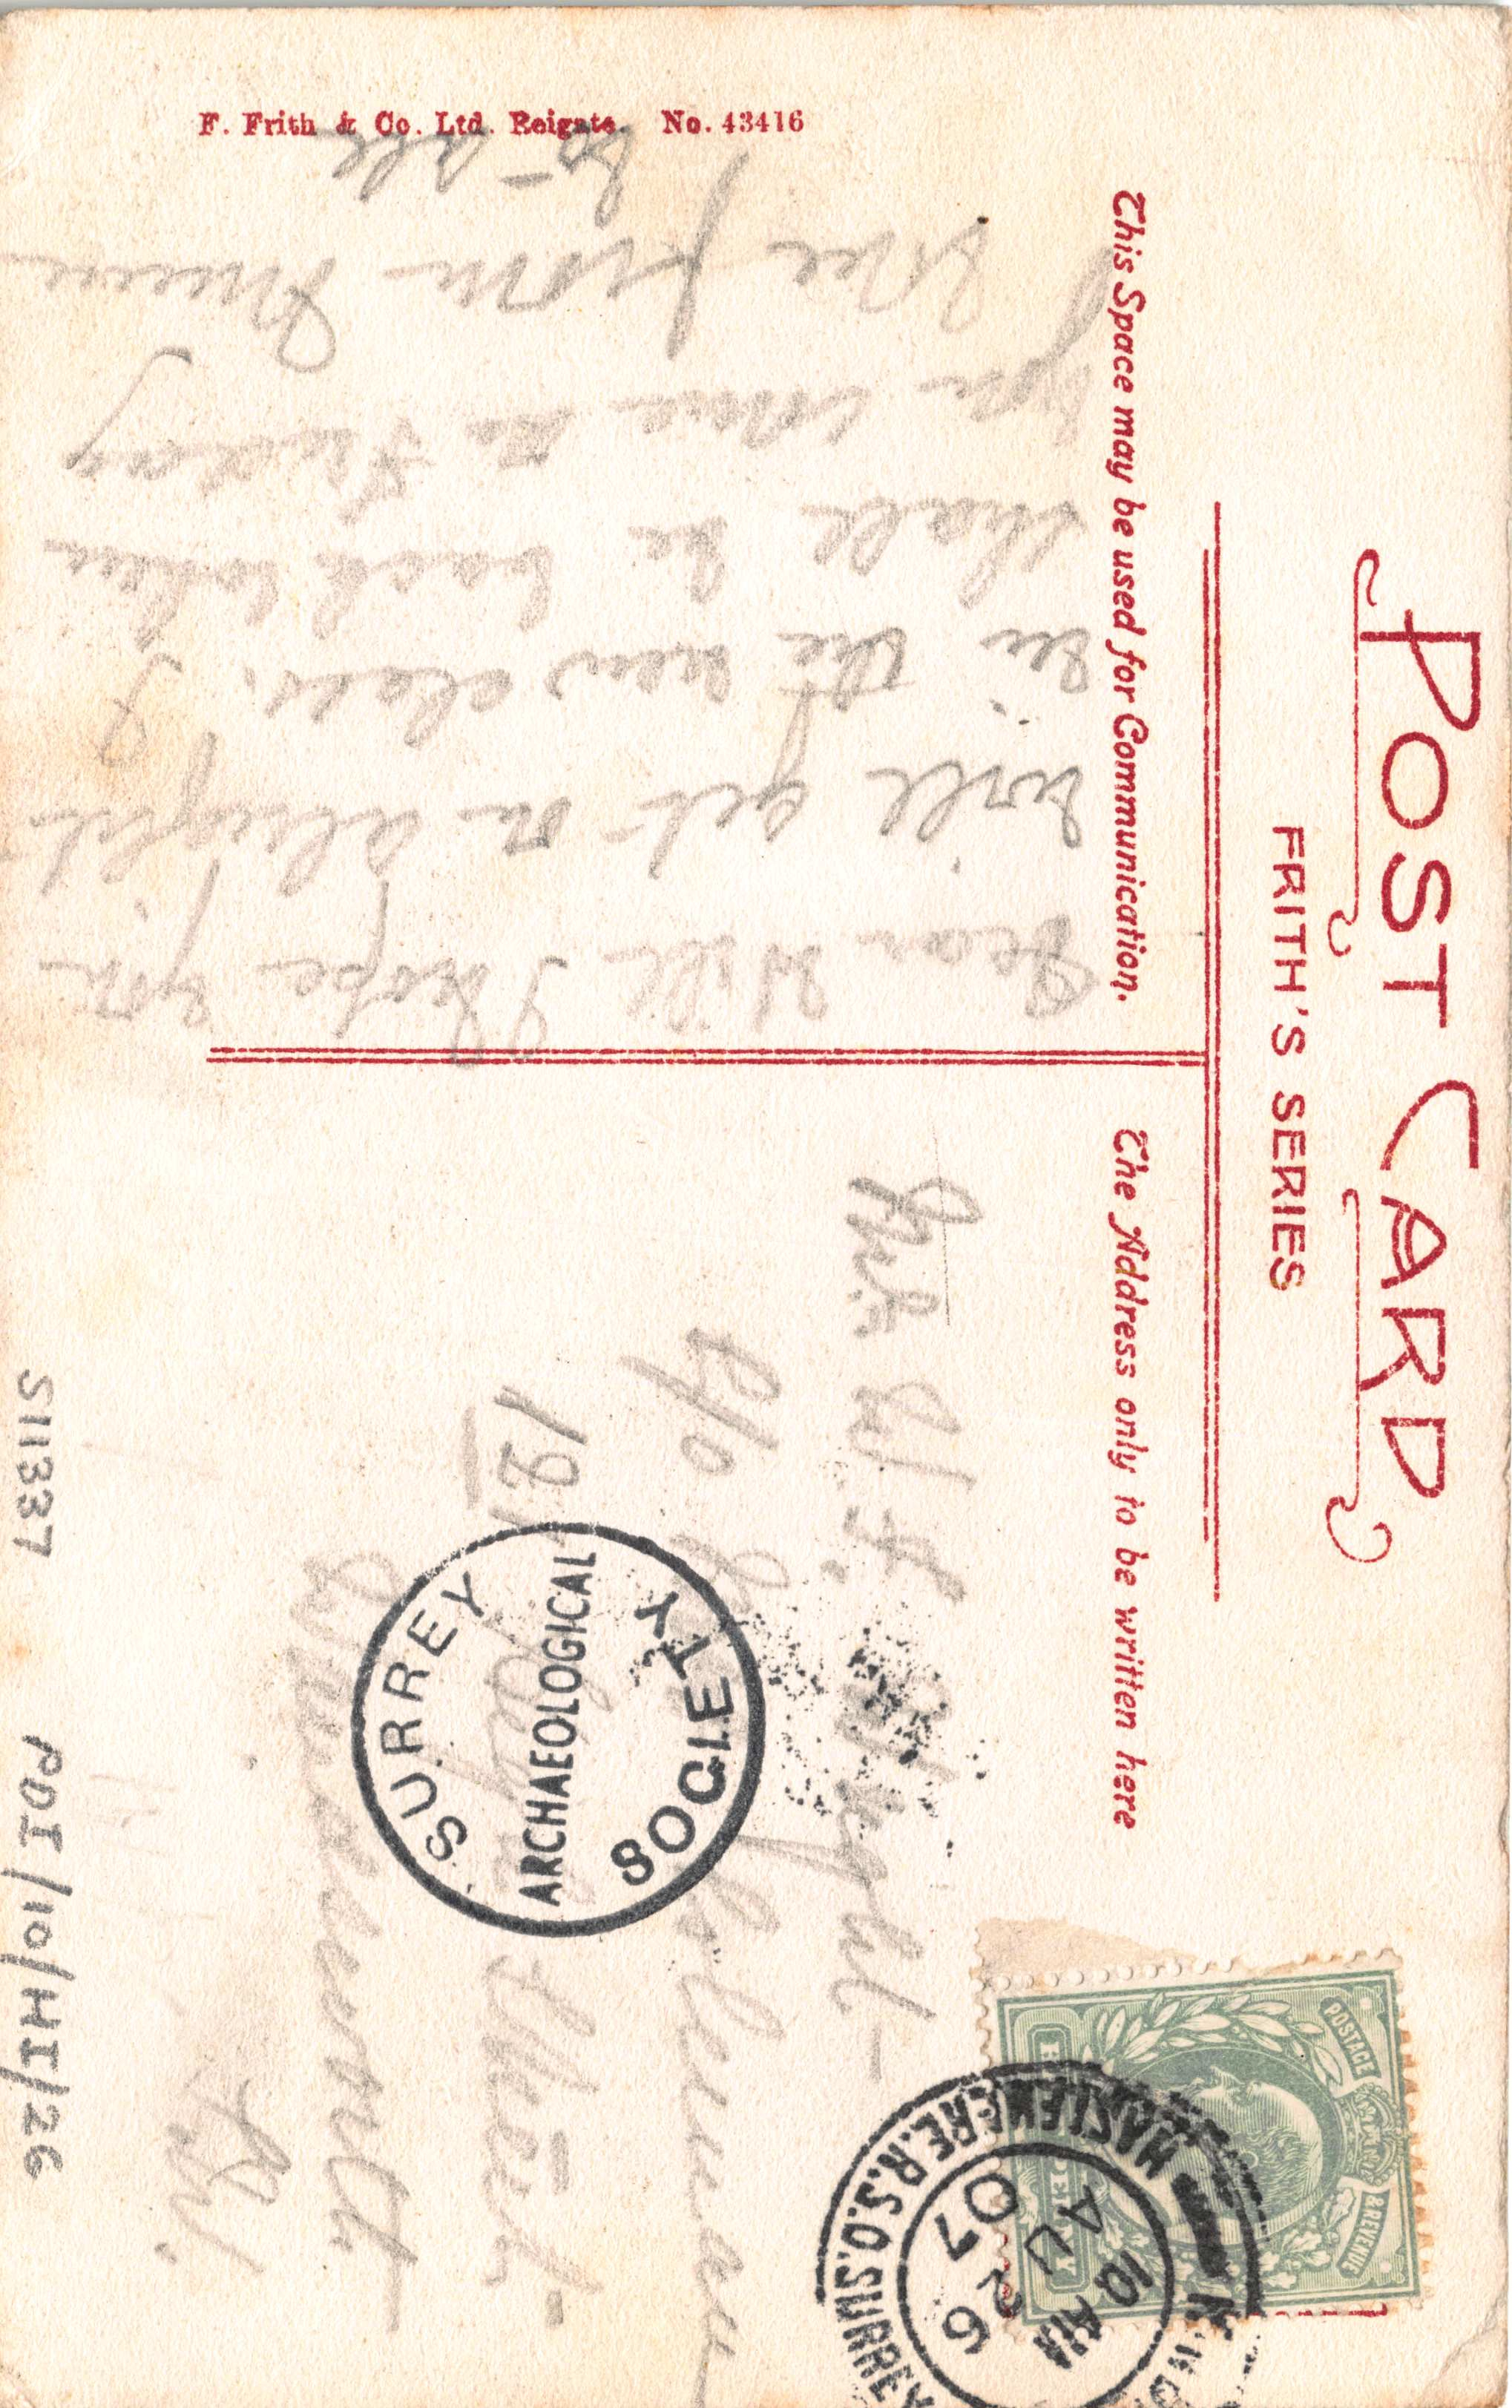 POST CARD
FRITH'S SERIES
This Space may be used for Communication.
The Address only to be written here
F. Frith & Co. Ltd. Reigate. No. 43416
Dear Will I hope you
will get on alright
in the new class. I
shall be back when
you come on Friday
love from
to all
Mr. W. F. Wright
C/o
121
Street
Wandsworth
SURREY
ARCHAEOLOGICAL
SOCIETY
POSTAGE
& REVENUE
HASLEMERE.R.S.O.SURREY
10 AM
AU 26
07
S11337
PDI/10/HI/26